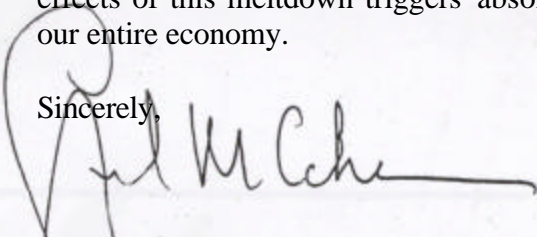 effects of this meltdown triggers absol
our entire economy.
Sincerely,